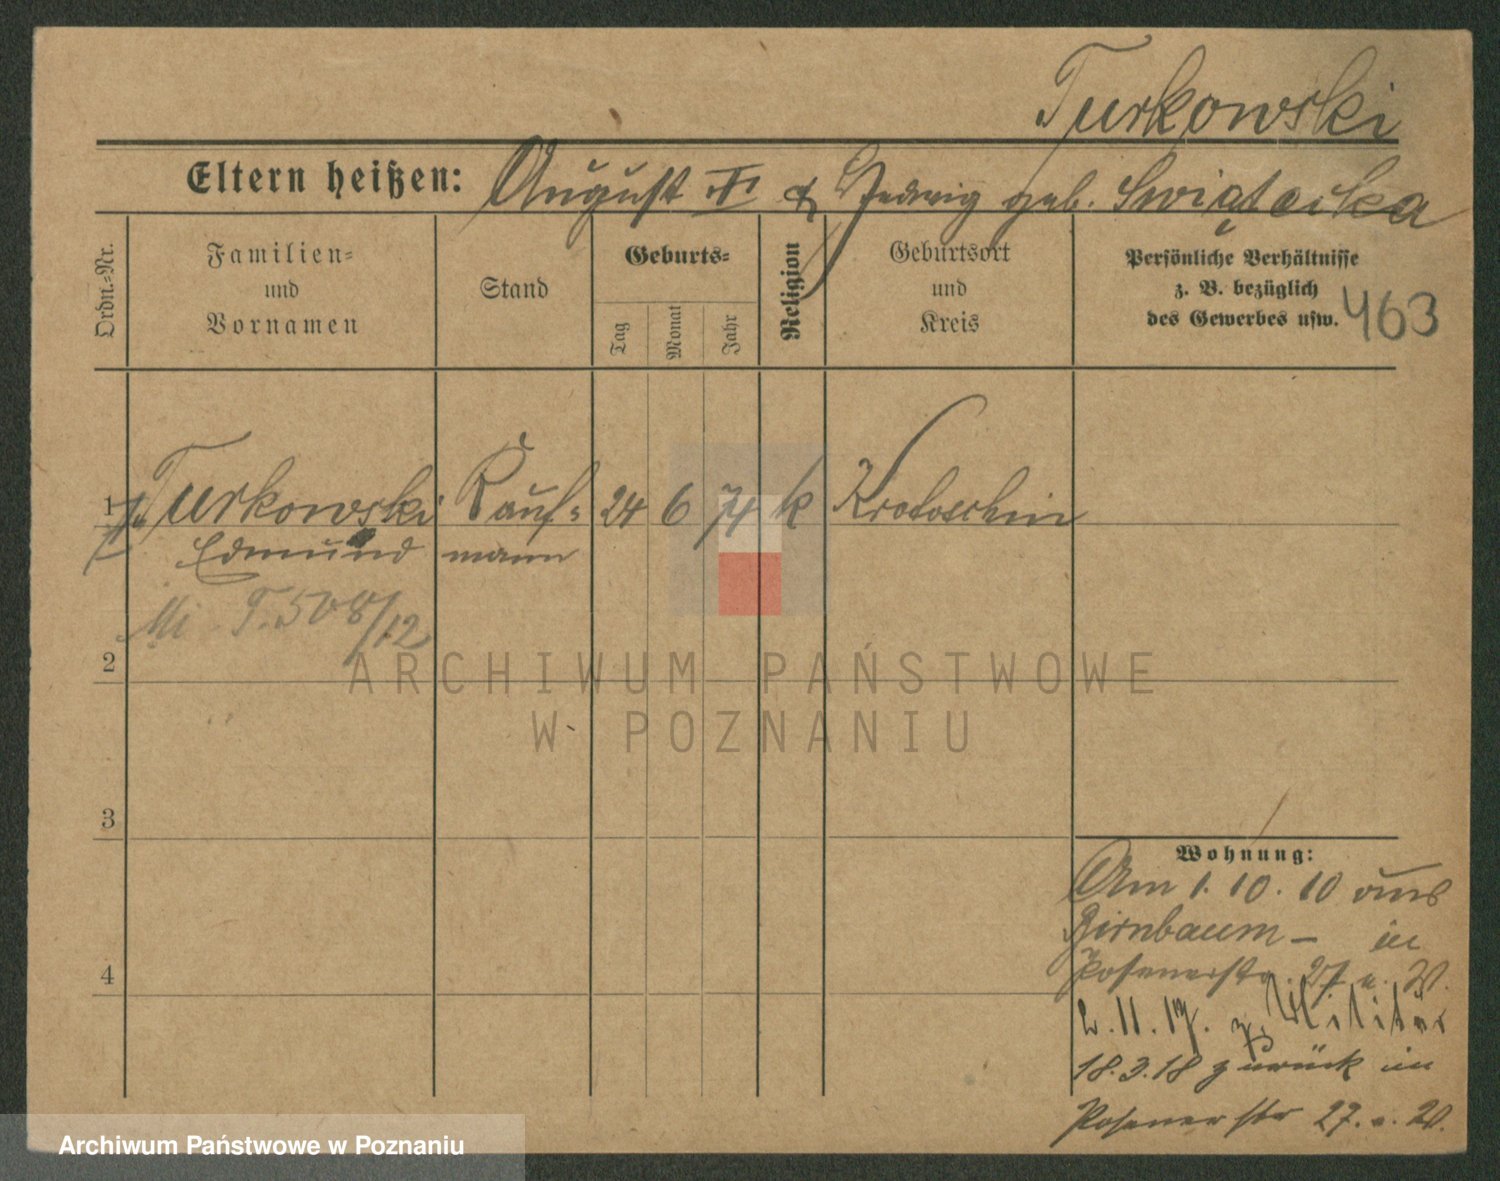 Turkowski
Eltern heißen: August T & Hedwig geb. Swiątecka
Ordn.-Nr.
Familien-
und
Vornamen
Stand
Geburts-
Tag
Monat
Jahr
Religion
Geburtsort
und
Kreis
Persönliche Verhältnisse
z. B. bezüglich
des Gewerbes usw.
463
1 Turkowski Kauf- 24 6 74 k Krotoschin
Edmund mann
T. 508/12
2
ARCHIWUM PAŃSTWOWE
W POZNANIU
3
Wohnung:
Am 1. 10. 10 aus
Birnbaum – in
4
Posenerstr. 27 a. W.
2. 11. 17. z. Militär
18.3.18 zurück in
Posenerstr 27. a. W.
Archiwum Państwowe w Poznaniu